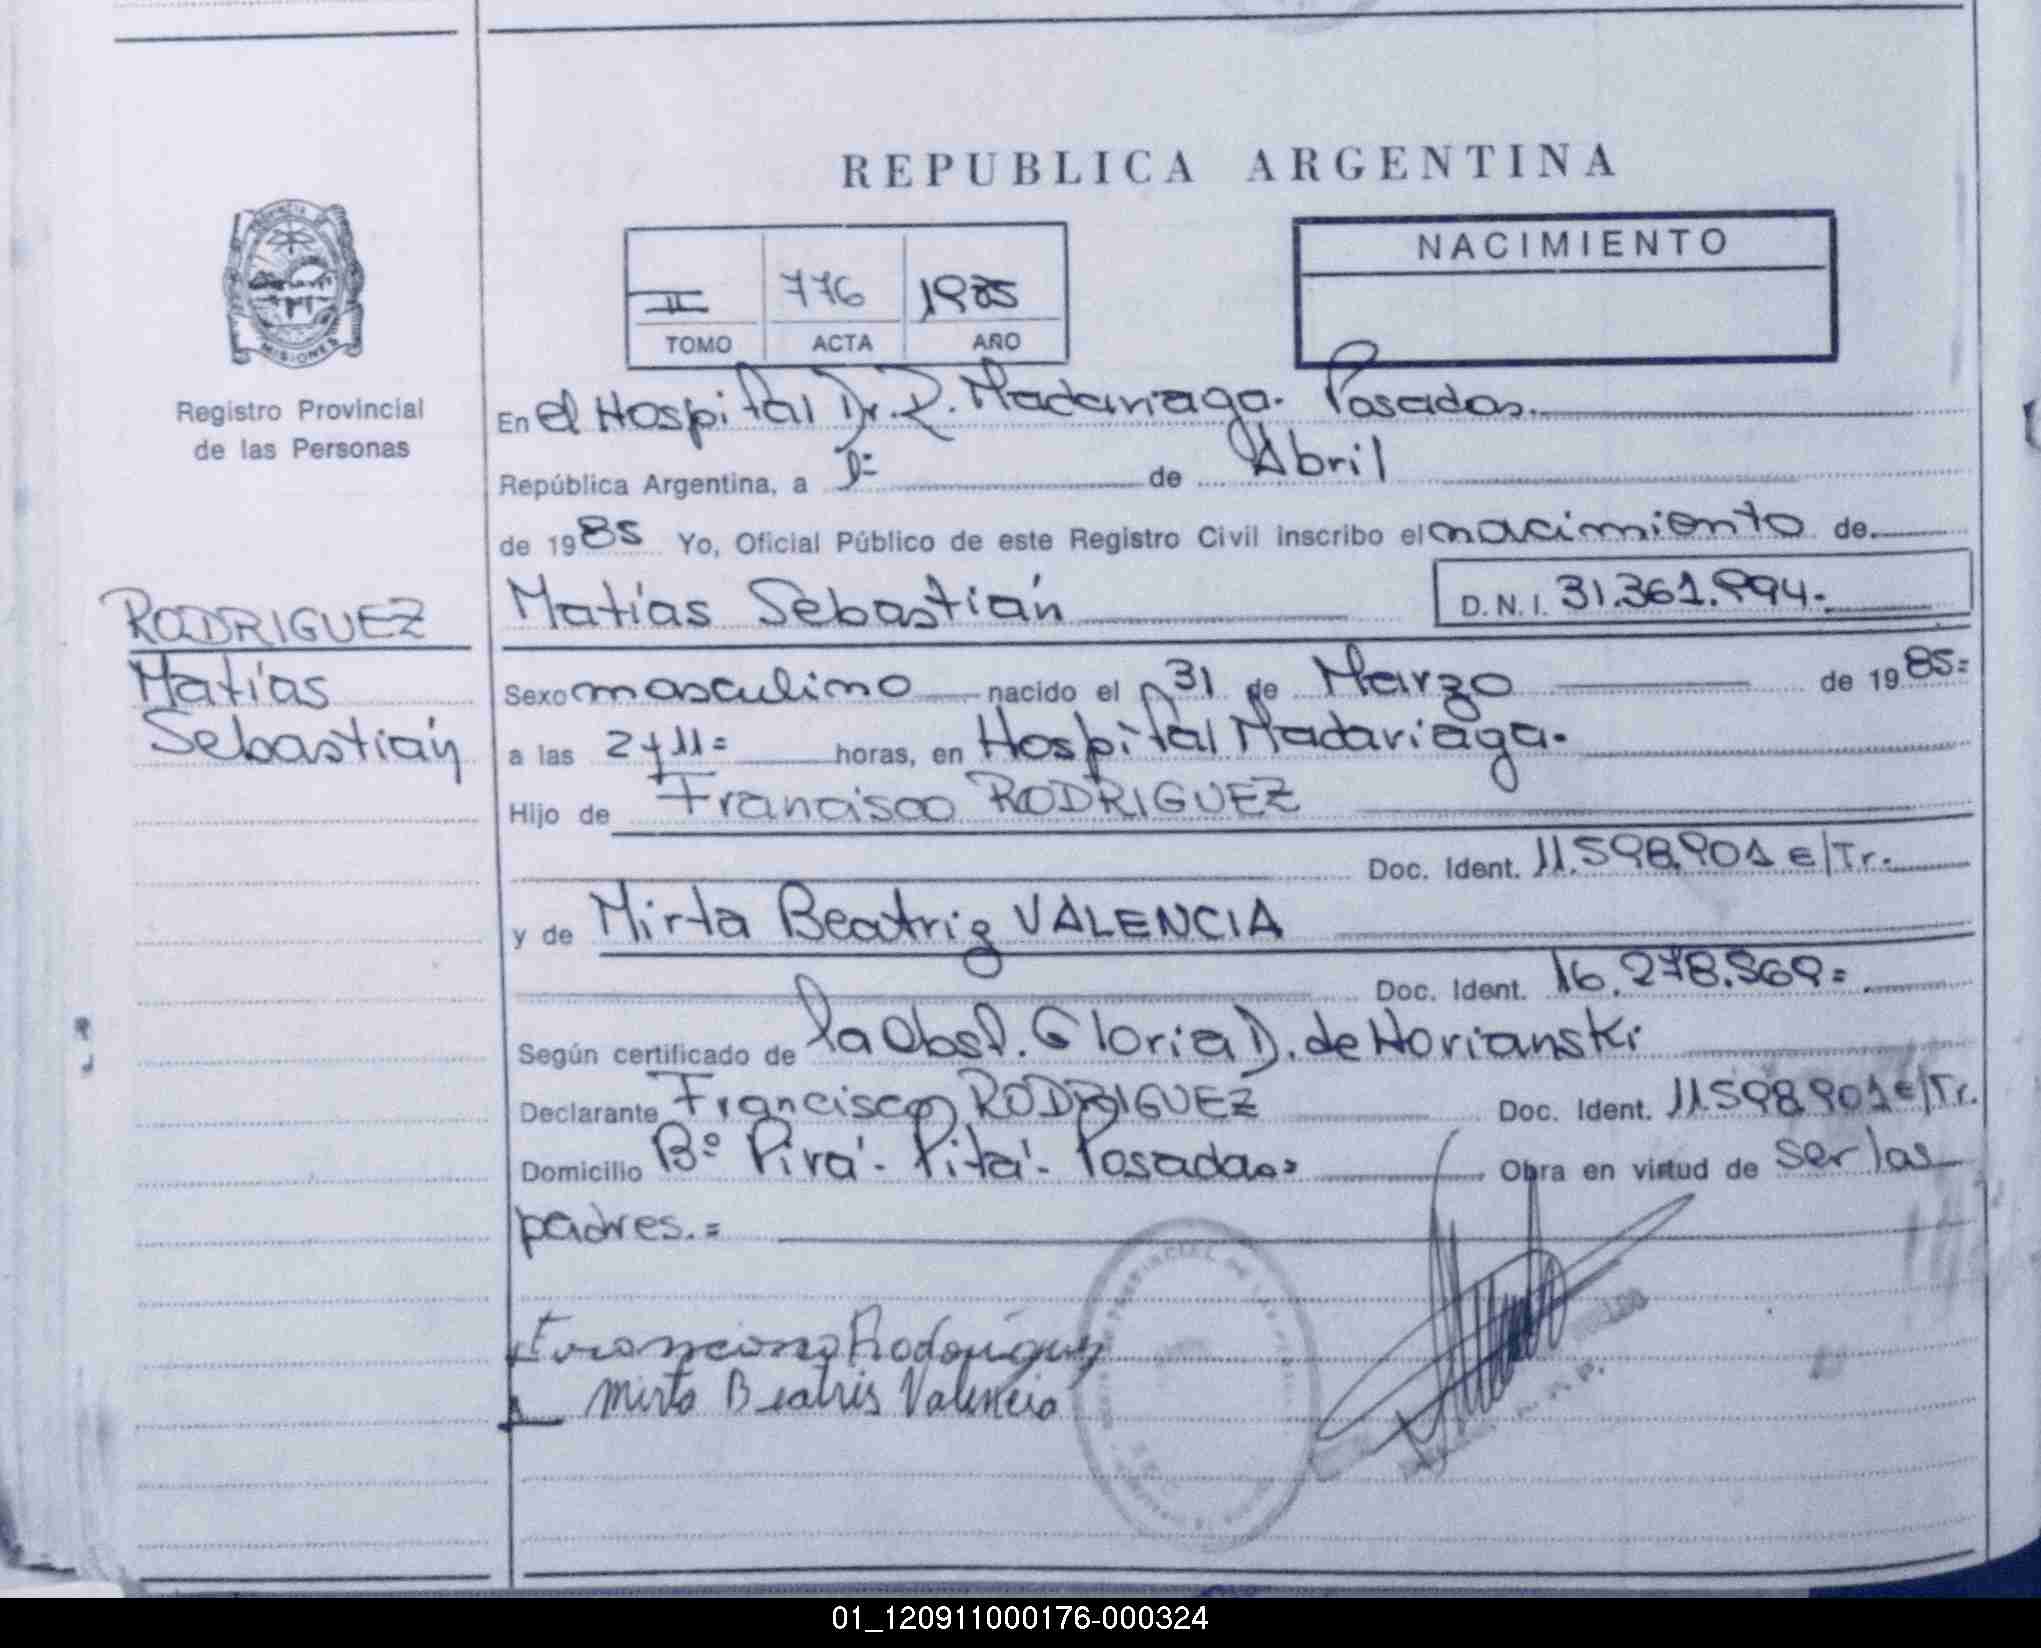 REPUBLICA ARGENTINA
NACIMIENTO
II 776 1985
TOMO ACTA AÑO
MISIONES
Registro Provincial
de las Personas
En el Hospital Dr. R. Madariaga. Posadas.
República Argentina, a 1º de Abril
de 1985 Yo, Oficial Público de este Registro Civil inscribo el nacimiento de
RODRIGUEZ
Matías
Sebastián
Matías Sebastián D.N.I. 31.361.994.
Sexo masculino nacido el 31 de Marzo de 1985=
a las 2 y 11= horas, en Hospital Madariaga.
Hijo de Francisco RODRIGUEZ
Doc. Ident. 11.598.901 e/Tr.
y de Mirta Beatriz VALENCIA
Doc. Ident. 16.278.969=
Según certificado de la Obst. Gloria D. de Horianski
Declarante Francisco RODRIGUEZ Doc. Ident. 11.598.901 e/Tr.
Domicilio Bº Pirá-Pitá-Posadas Obra en virtud de ser los
padres.=
Rodriguez
Mirta Beatris Valencia
01_120911000176-000324